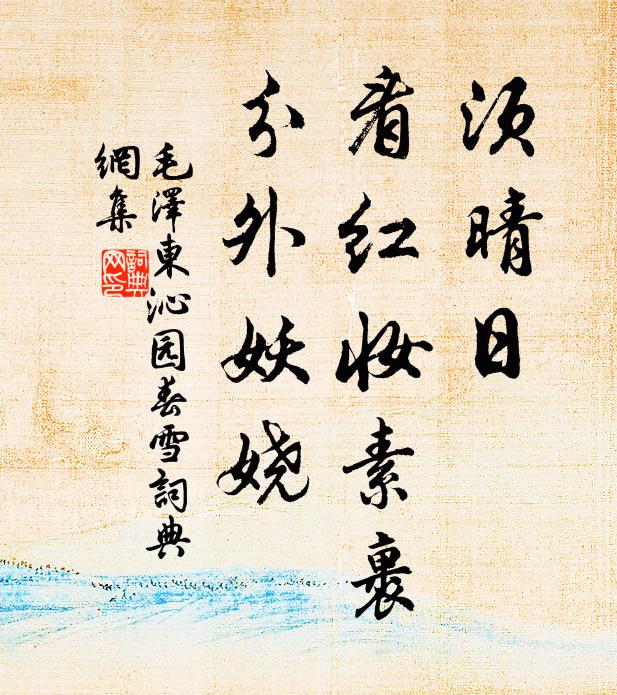 须晴日
看红妆素裹
分外妖娆
毛澤東沁园春雪詞典
網集
詞典
网印